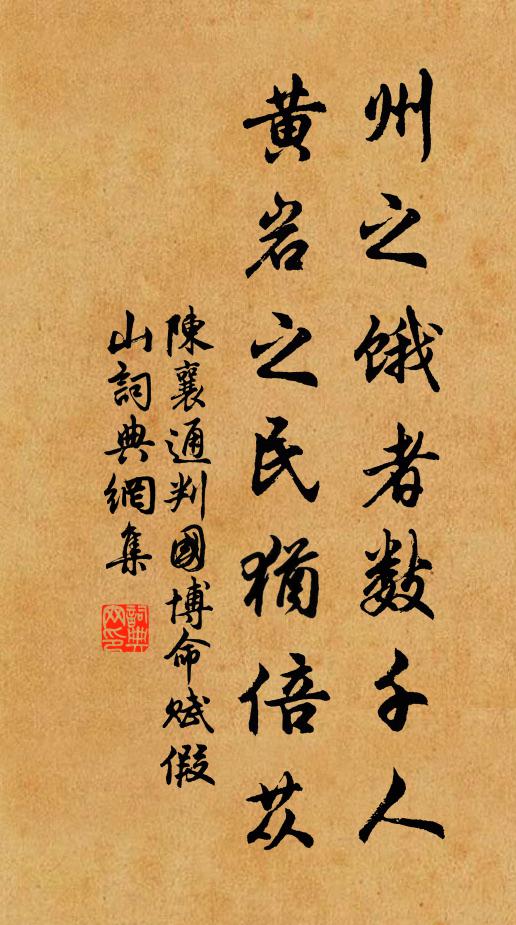 州之饿者数千人
黄岩之民犹倍苁
陳襄通判國博命赋假
山詞典網集
詞典网印